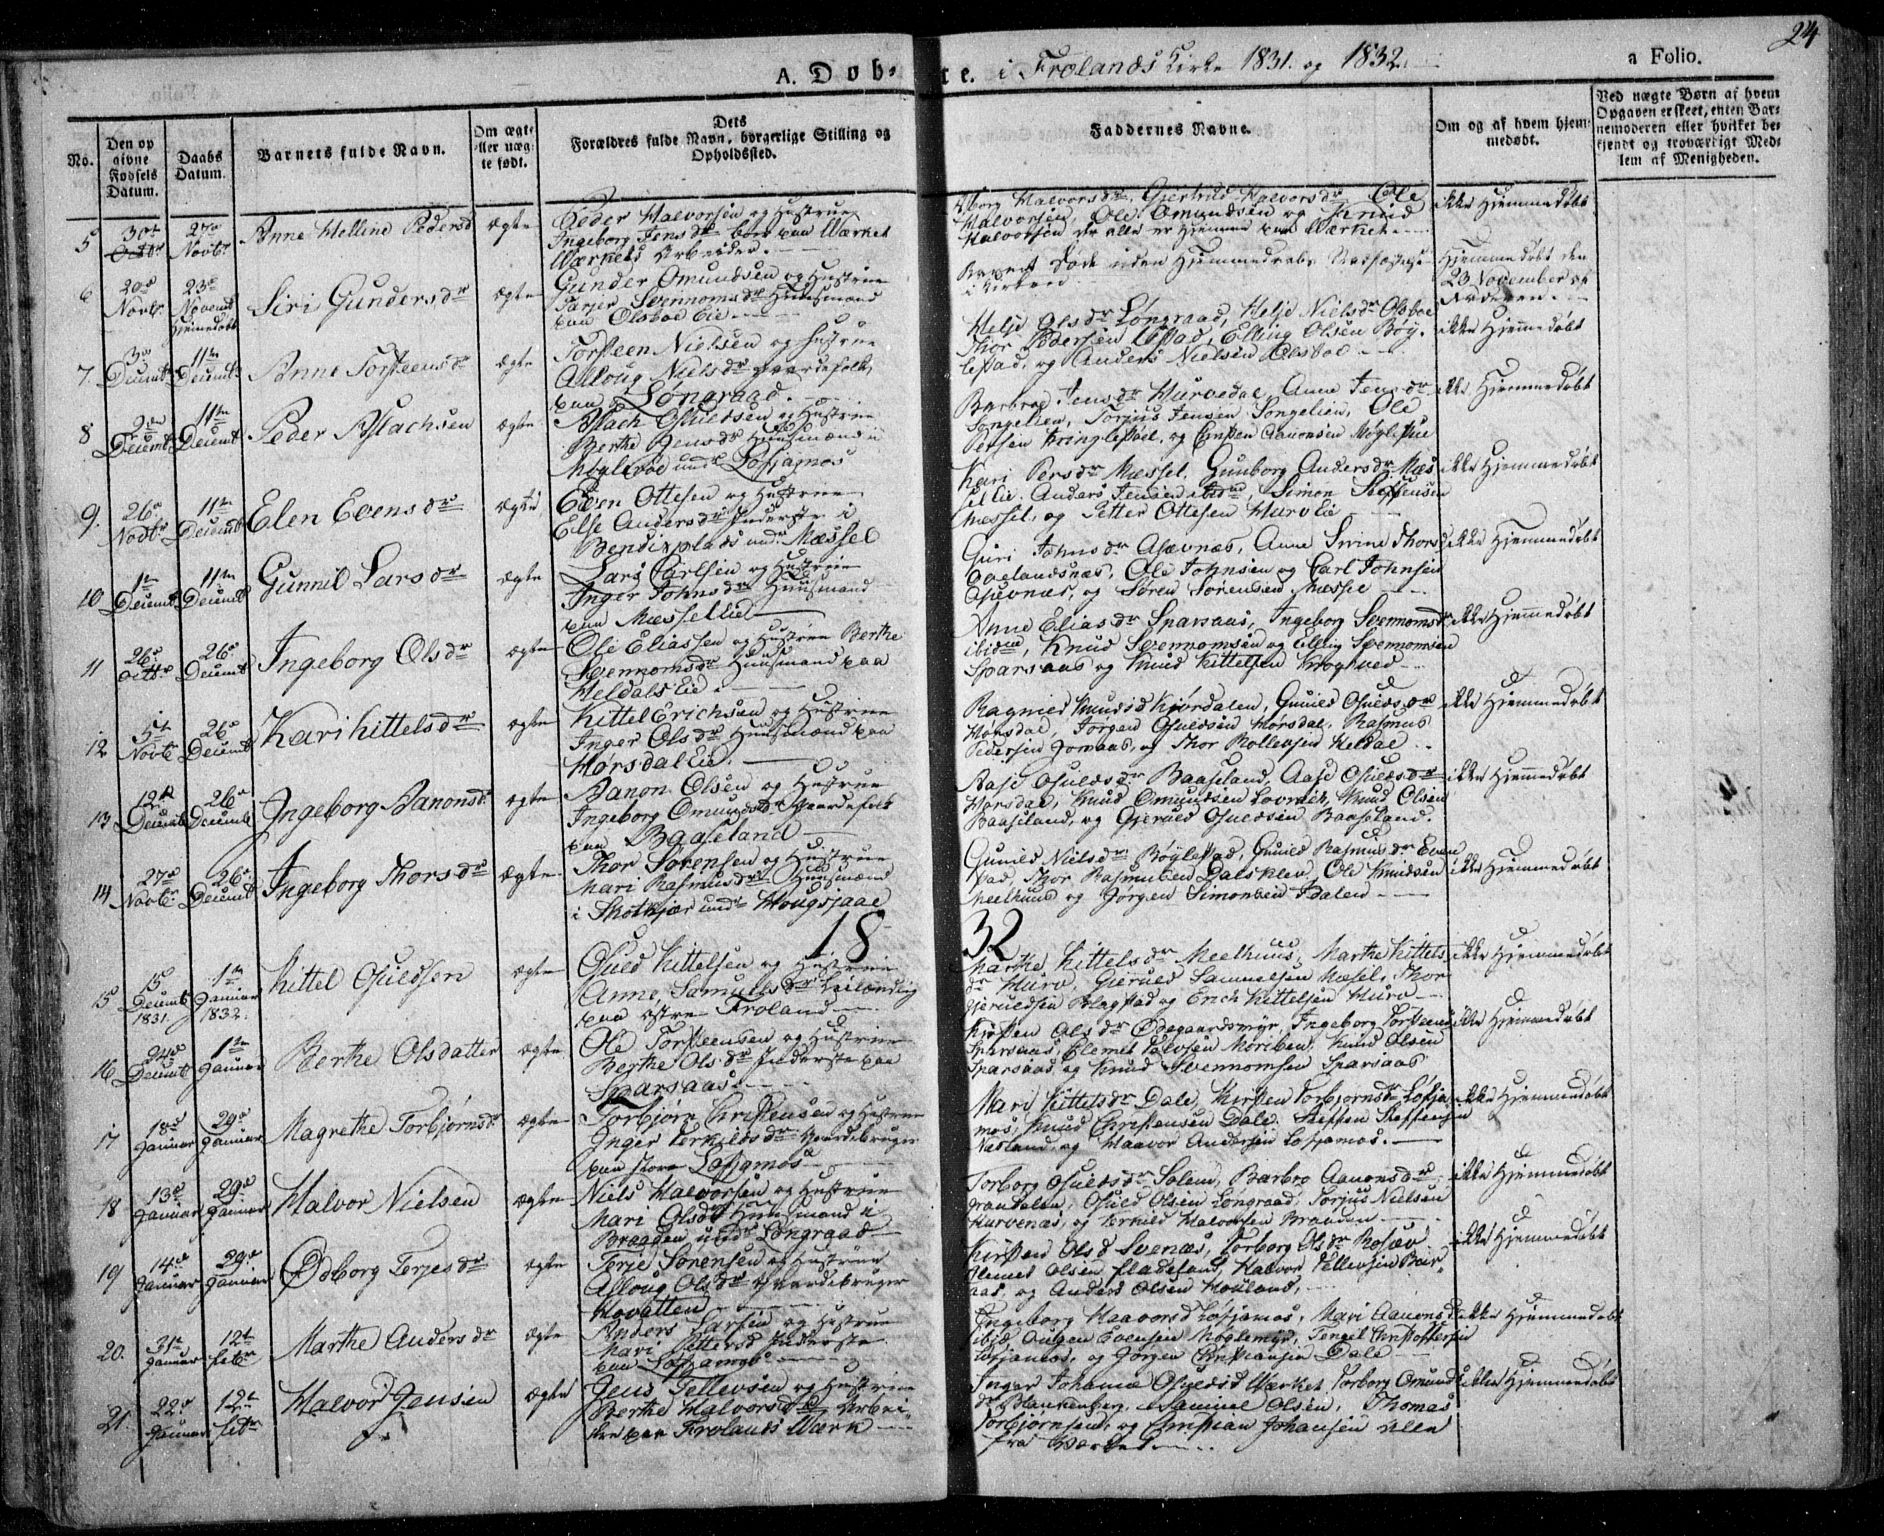 24
A. Dob= te. i Frolands Kirke 1831. og 1832.
a Folio.
No.
Den op
givne
Fødsels
Datum.
Daabs
Datum.
Barnets fulde Navn.
Om ægte
eller uæg-
te født.
Dets
Forældres fulde Navn, borgerlige Stilling og
Opholdssted.
Faddernes Navne.
Om og af hvem hjem-
medøbt.
Ved uægte Børn af hvem
Opgaven er skeet, enten Bar-
nemoderen eller hvilket be-
kjendt og troværdigt Med-
lem af Menigheden.
5
30t
Octbr
27de
Novbr
Anne Helline Pedersd
ægte
Peder Halvorsen og Hustrue
Ingeborg Jensdr boer paa Wærket
Wærkets Arbeider.
Halvorsen, Ole Omundsen og Knud
Halvorsen der alle er hjemme paa Wærket
ikke Hjemmedøbt
6
20de
Novbr
23de
Novemb
Hjemmedøbt
Siri Gundersdr
ægte
Gunder Omundsen og Hustrue
Tarjer Svennomsdr Huusmand
paa Olsboe Eie
Barnet døde uden Hjemmedaabs Stadfæstelse
i Kirken
Hjemmedøbt den
23 November af
Faderen
7.
3de
Decemb
11te
Decemb
Anne Torsteensdr
ægte
Torsteen Nielsen og Hustrue
Asloug Nielsdr gaardefolk
paa Løngraad.
Helje Olsdr Løngraad, Helje Nielsdr Olsboe
Thor Pedersen Løstad, Elling Olsen Bøy-
lestad, og Anders Nielsen Olsboe
ikke Hjemmedøbt
8
2den
Decemb
11te
Decemb
Peder Aslachsen
ægte
Aslach Osuldsen og Hustrue
Berthe Jensdr Huusmænd i
Møglestøe under Løfsjamos
Barbroe Jensdr Hurvedal, Anne Jensdr
Songelien, Torjus Jensen Songelien, Ole
Persen Kringlestøel, og Cristen Aanonsen Møglestue
ikke Hjemmedøbt
9.
26de
Novbr
11te
Decemb
Elen Evensdr
ægte
Even Ottesen og Hustrue
Else Andersdr Inderste i
Bendixplads under Mæssel
Kari Persdr Mæssel, Gunborg Andersdr Mæs
sel Eie, Anders Jensen ibid, Simon Steffensen
Mæssel, og Petter Ottesen Hurvlie
ikke Hjemmedøbt
10
1te
Decemb
11te
Decemb
Gunnil Larsdr
ægte
Lars Carlsen og Hustrue
Inger Johnsdr Huusmand
paa Mæssellie
Guri Johnsdr Osevnæs, Anne Serine Thorsd
Ole Johnsen og Carl Johnsen
Osevnæs, og Søren Sørensen Mæssel
ikke Hjemmedøbt
11
26de
Octbr
26de
Decemb
Ingeborg Olsdr
ægte
Ole Eliassen og Hustrue Berthe
Svennomsdr Huusmand paa
Heldals Eie.
Anne Eliasdr Sparsaas, Ingeborg Svennomsdr
ibidem, Knud Svennomsen og Elling Svennomsen
Sparsaas og Knud Kittelsen Krogtved
ikke Hjemmedøbt
12
5te
Novbr
26de
Decemb
Kari Kittelsdr
ægte
Kittel Erichsen og Hustrue
Inger Olsdr Huusmænd paa
Horsdal Eie.
Ragnied Knudsd Kjørdalen, Gunild Osuldsdr
Horsdal, Jørgen Osuldsen Horsdal, Rasmus
Pedersen Jomaas, og Thor Rollevsen Heldal
ikke Hjemmedøbt
13
12te
Decemb
26de
Decemb
Ingeborg Aanonsd.
ægte
Aanon Olsen og Hustrue
Ingeborg Omundsd. Gaardefolk
paa Baaseland
Aase Osuldsdr Baaseland, Aase Osuldsdr
Horsdal, Knud Omundsen Lovræk, Knud Olsen
Baaseland, og Gjeruld Osuldsen Baaseland.
ikke Hjemmedøbt
14
27de
Novbr.
26de
Decemb
Ingeborg Thorsdr
ægte
Thor Sørensen og Hustrue
Mari Rasmusdr Huusmænd
i Skotkjær under Hougsjaae
Gunild Nielsdr Bøylestad, Gunild Rasmusdr Even
stad, Thor Rasmussen Dalsklev, Ole Knudsen
Meelhuus og Jørgen Simonsen Idalen
ikke Hjemmedøbt
18 32
15
15
Decemb
1831.
1te
Januar
1832.
Kittel Osuldsen
ægte
Osuld Kittelsen og Hustrue
Anne Samuelsdr Leilænding
paa østre Froland
Marthe Kittelsdr Meelhuus, Marthe Kittels
dr Hurv, Gjeruld Samuelsen Mæsel, Thor
Gjeruldsen Blagstad og Erich Kittelsen Hurv
ikke Hjemmedøbt
16
24de
Decemb
1te
Januar
Berthe Olsdatter
ægte
Ole Torsteensen og Hustrue
Berthe Olsdr Inderste paa
Sparsaas.
Kirsten Olsdr Ødegaardsmyr, Ingeborg Torsteensd
Sparsaas, Clemet Knud Olsen
Sparsaas og Knud Svennomsen Sparsaas
ikke Hjemmedøbt
17
18de
Januar
29de
Januar
Magrethe Torbjørnsd.
ægte
Torbjørn Christensen og Hustrue
Inger Terkildsdr Gaardebruger
paa store Løfsjamos
Mari Kittelsdr Dale, Kirsten Torbjørnsdr Løfsja
mos, Knud Christensen Dale, Steffen Steffensen
Næsland, og Haavor Andersen Løfsjamos.
ikke Hjemmedøbt
18
13de
Januar
29de
Januar
Halvor Nielsen
ægte
Niels Halvorsen og Hustrue
Mari Olsdr Huusmand i
Braaden under Løngraad
Torborg Osuldsdr Solem, Barbro Aanonsdr
Osuld Olsen Longraad, Torjus Nielsen
Hurvenæs, og Terkild Halvorsen Braaden
ikke Hjemmedøbt
19
14de
Januar
29de
Januar
Ødborg Terjesdr
ægte
Terje Sørensen og Hustrue
Asloug Olsdr Gaardebruger
Hovatten
Kirsten Olsd Svenæs, Torborg Olsdr Rosæv
Clemet Olsen Fladeland, Halvor Tellevsen Bær-
aas, og Anders Olsen Houland,
ikke Hjemmedøbt
20.
31te
Januar
12te
Febr
Marthe Andersdr
ægte
Anders Larsen og Hustrue
Mari Pettersd Inderste
paa Løfsjamos
Ingeborg Haavorsd Løfsjamos, Mari Aanonsd
ibid, Ougen Evensen Møglemyr, Tengel Christoffersen
Løfsjamos, og Jørgen Christiansen Dale
ikke Hjemmedøbt
21.
22de
Januar
12te
Febr
Halvor Jensen
ægte
Jens Tellevsen og Hustrue
Berthe Halvorsdr Arbei-
der paa Frolands Wærk
Inger Johanne Osuldsd Wærket, Torborg Omunds
dr Blankenberg, Samuel Olsen, Thomas
Torbjørnsen, og Christian Johansen alle
fra Værket
ikke Hjemmedøbt